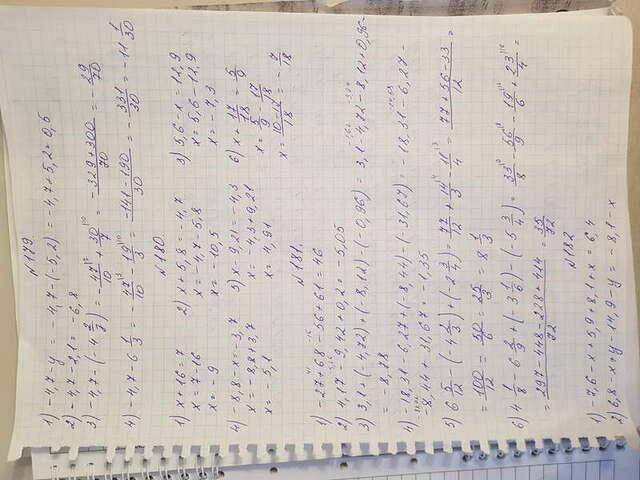 №179
1) -4,7-y = -4,7-(-5,2) = -4,7+5,2=0,5
2) -4,7-2,1= -6,8
3) -4,7-(-4 2/7) = -47/10 + 30/7 = (-329+300)/70 = -29/70
4) -4,7-6 1/3 = -47/10 - 19/3 = (-141-190)/30 = -331/30 = -11 1/30
№180.
1) x+16=7 2) x+5,8=-4,7 3) 5,6-x=12,9
x=7-16 x=-4,7-5,8 x=5,6-12,9
x=-9 x=-10,5 x=-7,3
4) -8,8-x=-3,7 5) x-9,21=-4,3 6) x+17/18=5/9
x=-8,8+3,7 x=-4,3+9,21 x=5/9-17/18
x=-5,1 x=4,91 x=(10-17)/18=-7/18
№181.
1) -27+68-56+61=46
2) 4,17-9,42+0,2=-5,05
3) 3,1+(-4,72)+(-8,12)-(-0,96) = 3,1-4,72-8,12+0,96=
= -8,78
4) -18,31-6,27+(-8,44)-(-31,67) = -18,31-6,27-
-8,44+31,67=-1,35
5) 6 5/12-(-4 2/3)+(-2 3/4)=77/12+14/3-11/4=(77+56-33)/12=
=100/12=50/6=25/3=8 1/3
6) 4 1/8-6 2/9+(-3 1/6)-(-5 3/4)=33/8-56/9-19/6+23/4=
=(297-448-228+414)/72=35/72
№182
1) -7,6-x+5,9+8,1+x=6,4
2) 6,8-x+y-14,9-y=-8,1-x